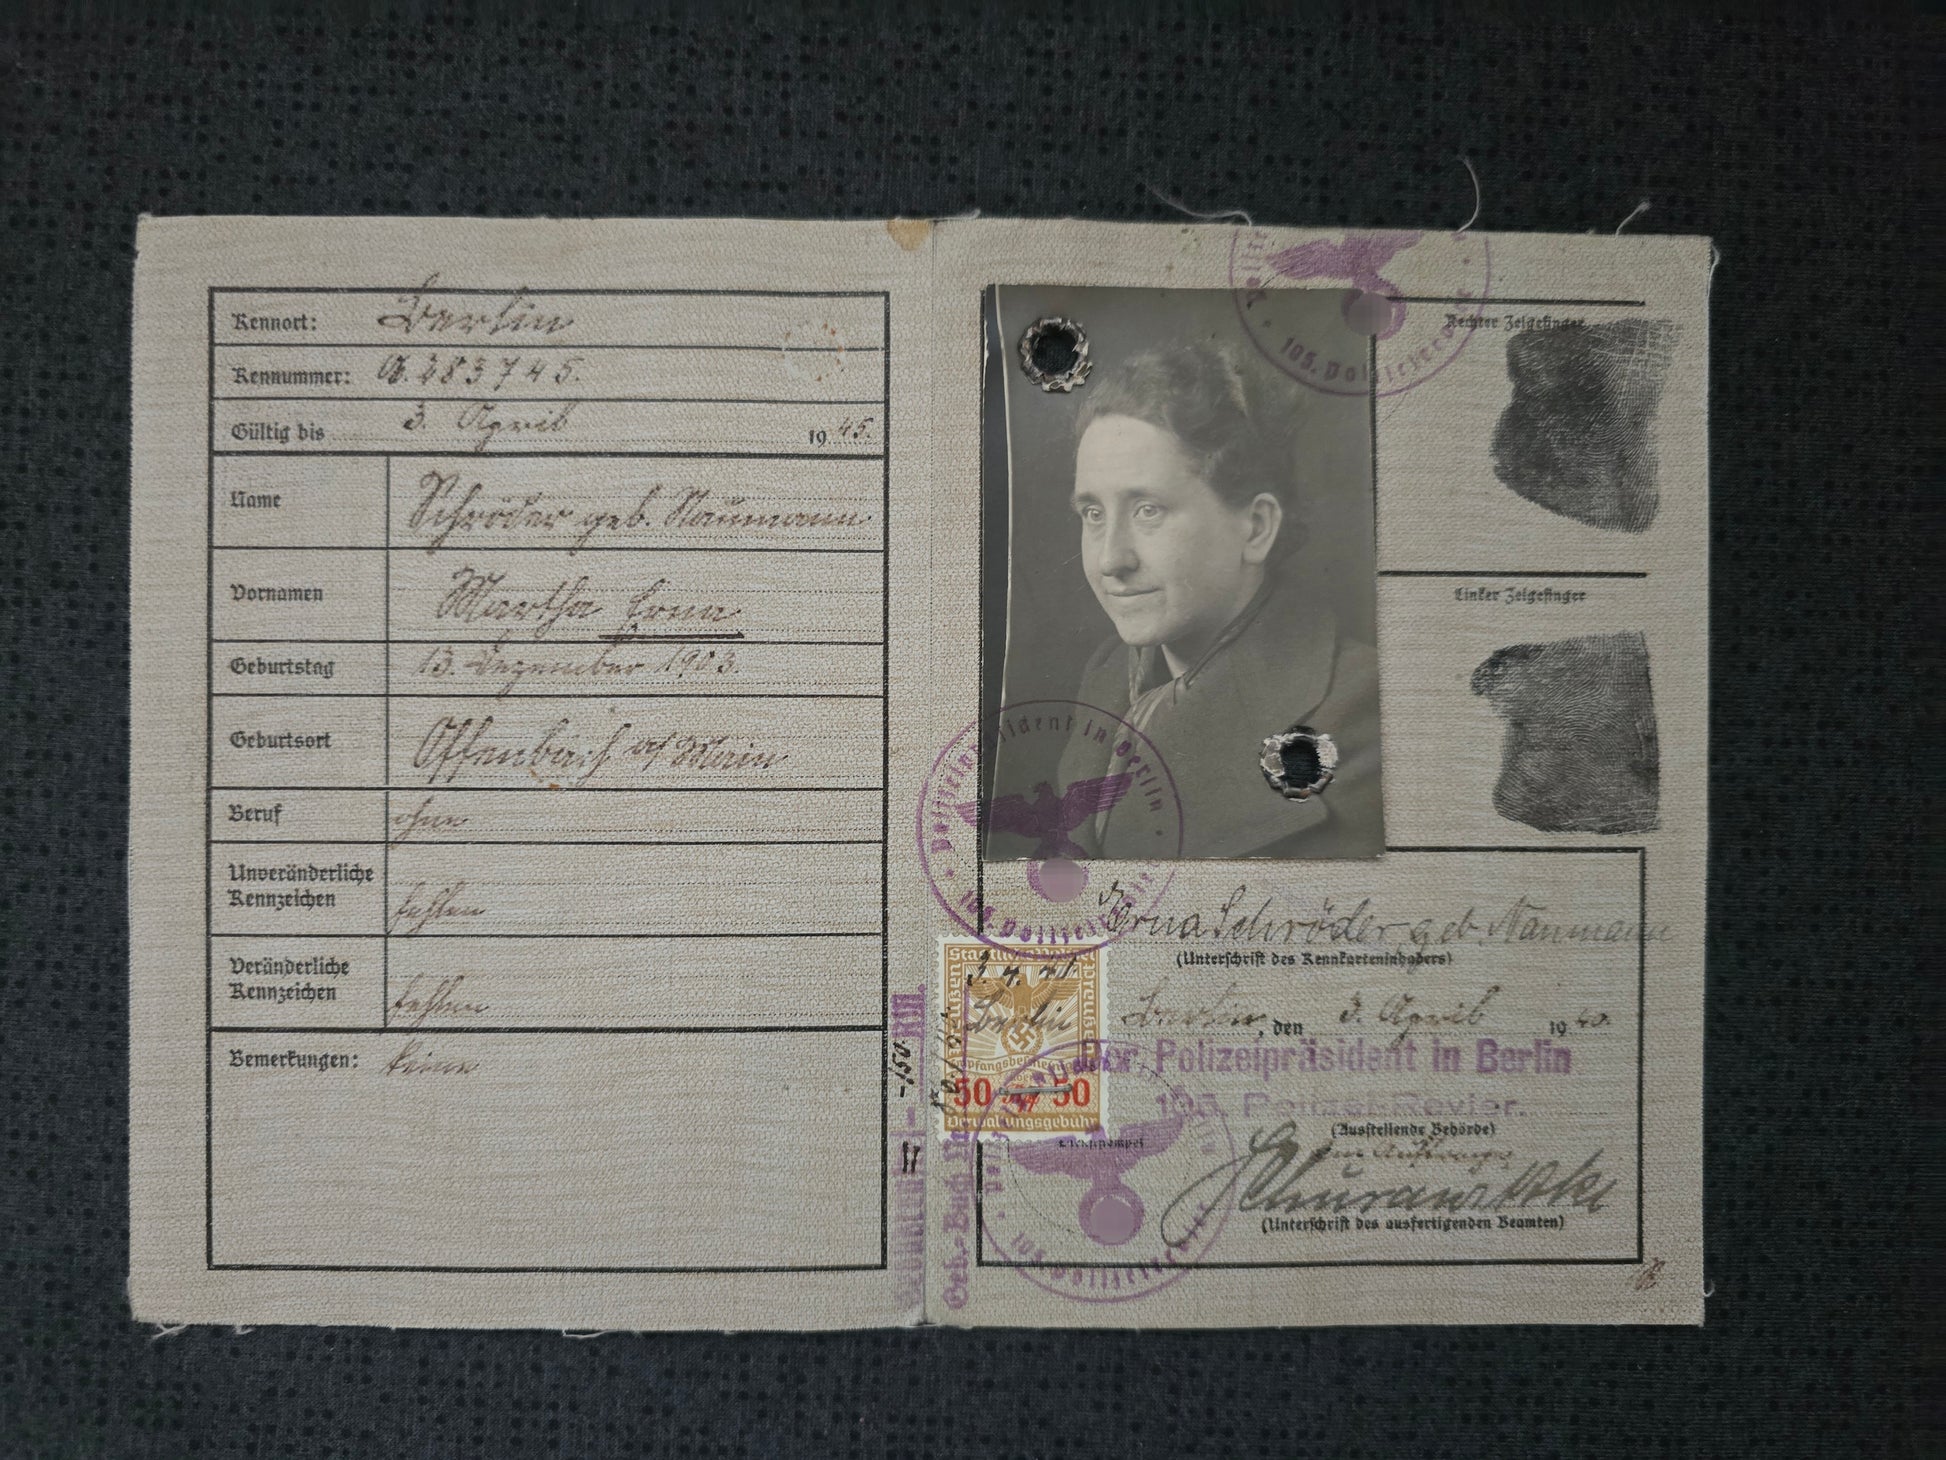 Kennort: Berlin
Kennummer: A. 283745.
Gültig bis 3. April 1945.
Name Schröder geb. Naumann
Vornamen Martha Erna
Geburtstag 13. Dezember 1903.
Geburtsort Offenbach a/Main
Beruf ohne
Unveränderliche Kennzeichen fehlen
Veränderliche Kennzeichen fehlen
Bemerkungen: keine
Rechter Zeigefinger
Linker Zeigefinger
105. Polizeirevier
Polizeipräsident in Berlin
105. Polizeirevier
Erna Schröder, geb. Naumann
(Unterschrift des Kennkarteninhabers)
3. 4.
Berlin
50 50
Verwaltungsgebühr
Berlin, den 3. April 1940.
Der Polizeipräsident in Berlin
105. Polizei-Revier.
(Ausstellende Behörde)
(Unterschrift des ausfertigenden Beamten)
Geb.-Buch
105. Polizeirevier